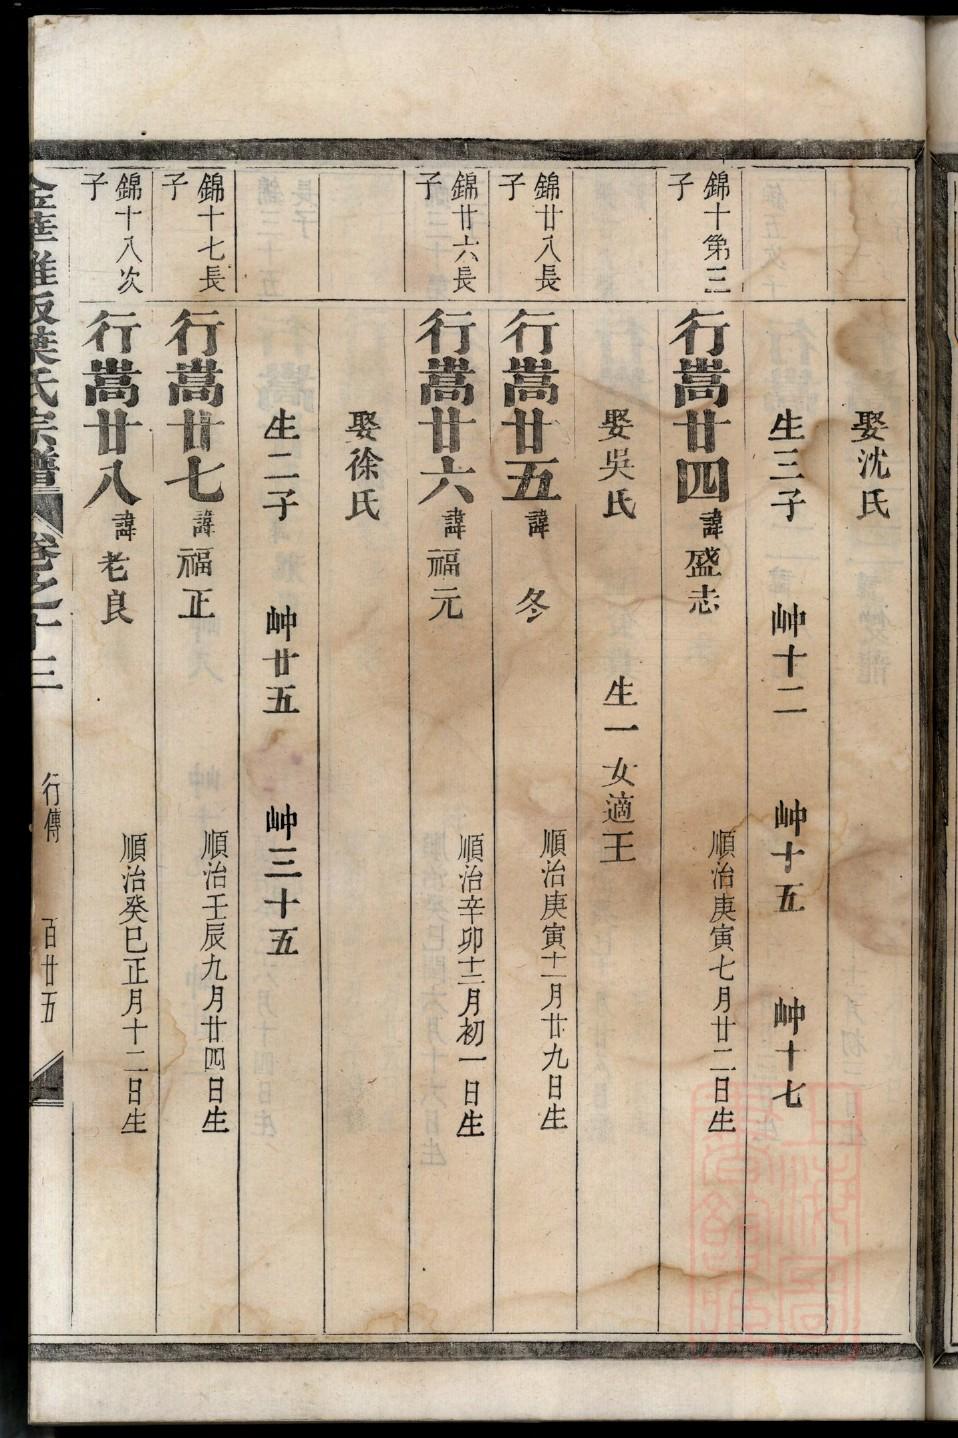 娶沈氏
生三子 𡵙十二 𡵙十五 𡵙十七
錦十第三子
行嵩廿四 諱盛志 順治庚寅七月廿二日生
娶吳氏 生一女適王
錦廿八長子
行嵩廿五 諱冬 順治庚寅十一月廿九日生
錦廿六長子
行嵩廿六 諱福元 順治辛卯十二月初一日生
娶徐氏
生二子 𡵙廿五 𡵙三十五
錦十七長子
行嵩廿七 諱福正 順治壬辰九月廿四日生
錦十八次子
行嵩廿八 諱老良 順治癸巳正月十二日生
金華 葉氏宗譜 卷之十三 行傳 百廿五